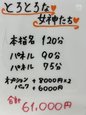 とろとろな
女神たち
本指名 120分
パネル 90分
パネル 75分
オプション + 8000円×2
パンフ + 6000円
合計
61,000円